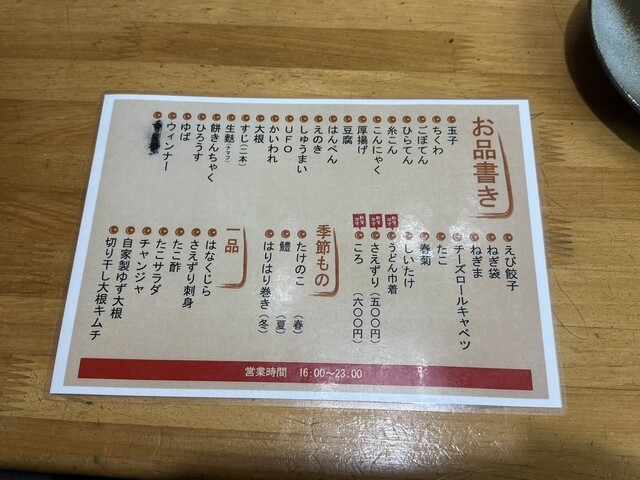 お品書き
玉子
ちくわ
ごぼてん
ひらてん
糸こん
こんにゃく
厚揚げ
豆腐
はんぺん
えのき
しゅうまい
UFO
かいわれ
大根
すじ(二本)
生麩(ナマフ)
餅きんちゃく
ひろうす
ゆば
ウィンナー
えび餃子
ねぎ袋
ねぎま
チーズロールキャベツ
たこ
春菊
しいたけ
うどん巾着
さえずり(五〇〇円)
ころ(六〇〇円)
季節もの
たけのこ(春)
鱧(夏)
はりはり巻き(冬)
一品
はなくじら
さえずり刺身
たこ酢
たこサラダ
チャンジャ
自家製ゆず大根
切り干し大根キムチ
営業時間 16:00〜23:00